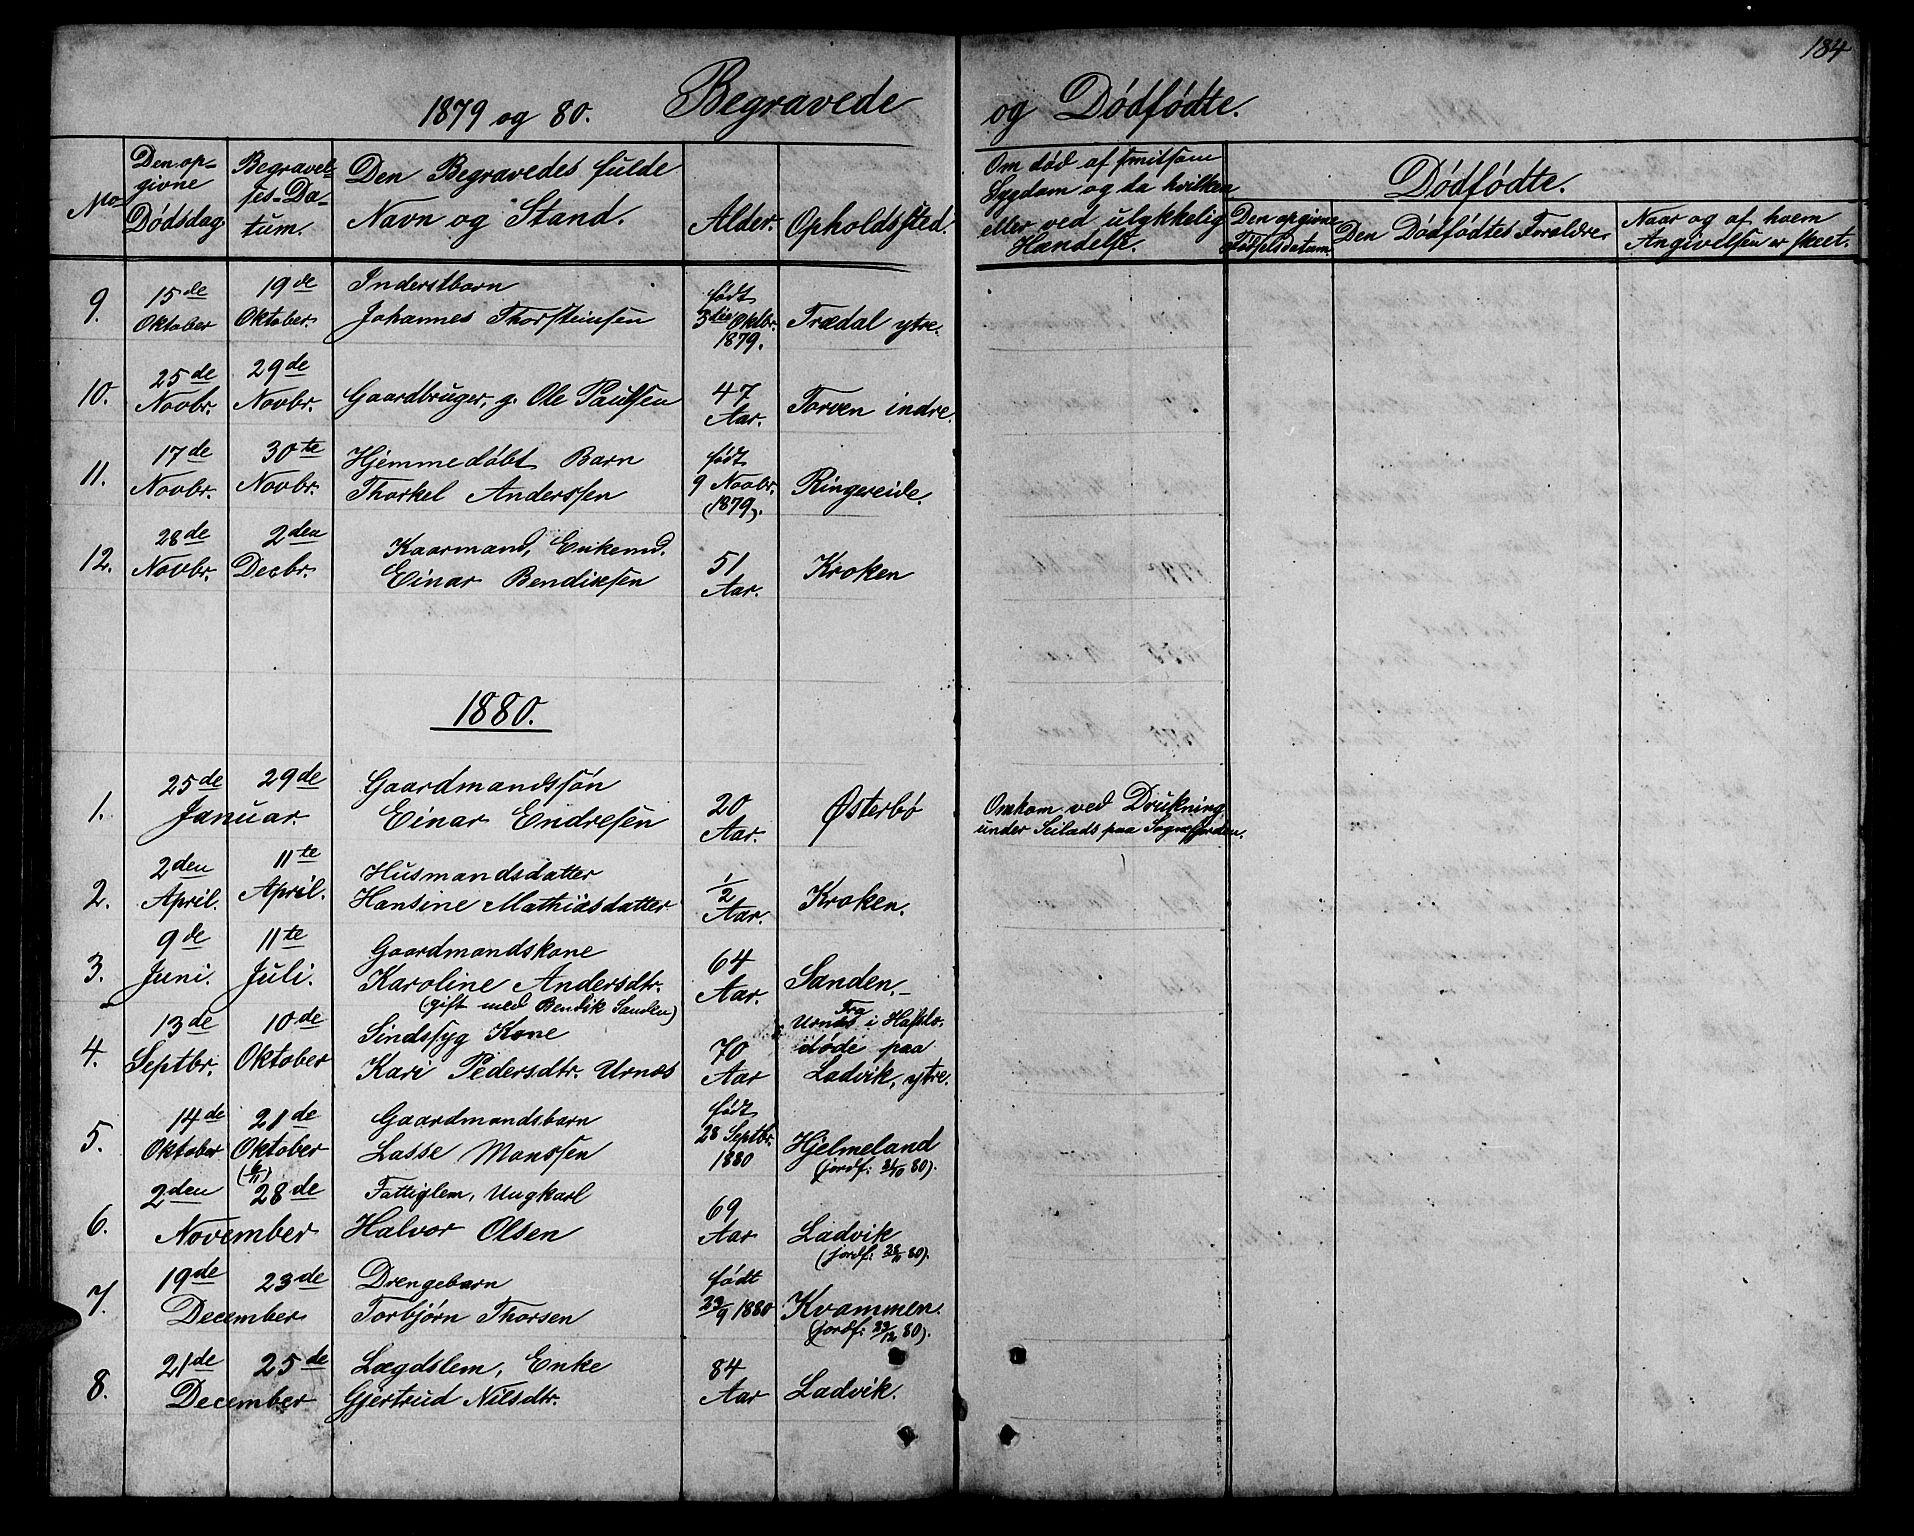 184
1879 og 80. Begravede og Dødfødte.
No
Den op-
givne
Dødsdag
Begravel-
ses-Da-
tum.
Den Begravedes fulde
Navn og Stand.
Alder.
Opholdssted.
Om død af smitsom
Sygdom og da hvilken
eller ved ulykkelig
Hændelse.
Dødfødte.
Den opgivne
Fødselsdatum.
Den Dødfødtes Forældre.
Naar og af hvem
Angivelsen er skeet.
9.
15de
Oktober
19de
Oktober.
Inderstbarn
Johannes Thorsteinsen
født
3die Oktbr.
1879.
Trædal ytre.
10.
25de
Novbr.
29de
Novbr.
Gaardbruger, g. Ole Paulsen
47
Aar.
Torven indre.
11.
17de
Novbr.
30te
Novbr.
Hjemmedøbt Barn
Thorkel Anderssen
født
9 Novbr.
(1879).
Ringereide.
12.
28de
Novbr.
2den
Decbr.
Kaarmand, Enkemd.
Einar Bendixsen
51
Aar.
Kroken
1880.
1.
25de 29de
Januar.
Gaardmandssøn
Einar Endresen
20
Aar.
Østerbø
Omkom ved Drukning
under Seilads paa Sognefjorden.
2.
2den
April.
11te
April.
Husmandsdatter
Hansine Mathiasdatter
1/2
Aar.
Kroken.
3.
9de
Juni.
11te
Juli.
Gaardmandskone
Karoline Andersdtr.
(gift med Bendik Sanden)
64
Aar.
Sanden.-
4.
13de
Septbr.
10de
Oktober
Sindssyg Kone
Kari Pedersdtr. Urnæs
70
Aar
Fra
Urnæs i Hafslo.
døde paa
Ladvik, ytre.
5.
14de
Oktober
21de
Oktober
Gaardmandsbarn
Lasse Monssen
født
28 Septbr.
1880
Hjelmeland
(jordf: 31/10 80).
6.
2den
(6/11)
28de
November
Fattiglem, Ungkarl
Halvor Olsen
69
Aar
Ladvik
(jordf: 28/11 80).
7.
19de 23de
December
Drengebarn
Torbjørn Thorsen
født
23/9 1880
Kvammen.
(jordf: 23/12 80).
8.
21de 25de
December
Lægdslem, Enke
Gjertrud Nilsdtr.
84
Aar
Ladvik.